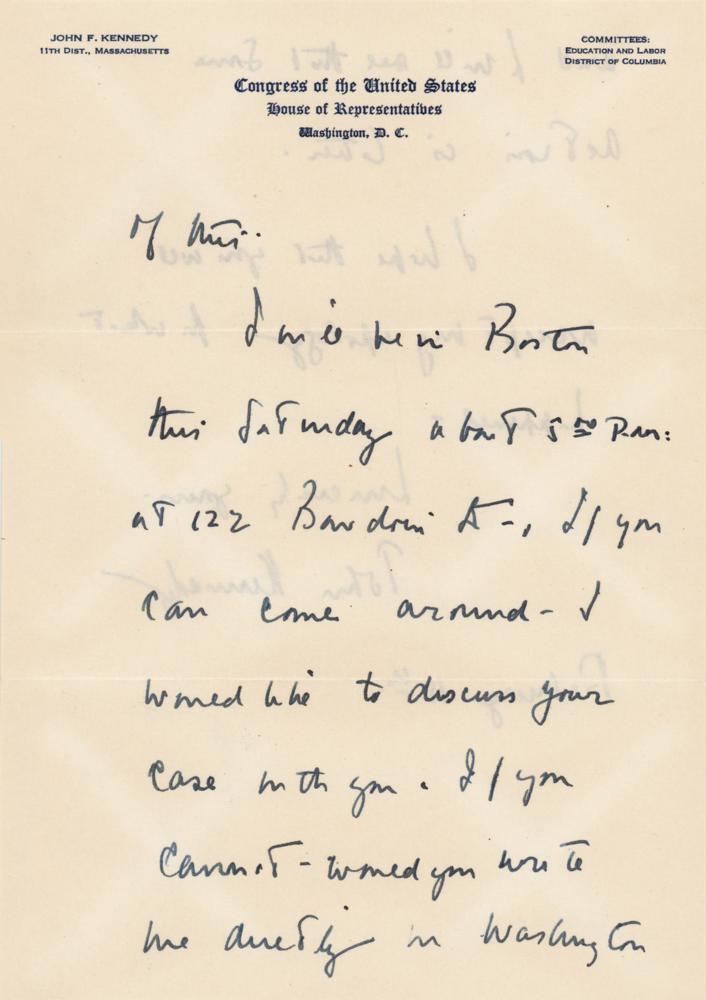 JOHN F. KENNEDY
11TH DIST., MASSACHUSETTS
COMMITTEES:
EDUCATION AND LABOR
DISTRICT OF COLUMBIA
Congress of the United States
House of Representatives
Washington, D. C.
I will be in Boston
this Saturday about 5 00 P.m.
at 122 Bowdoin St-, If you
can come around - I
would like to discuss your
case with you. If you
cannot - would you write
me directly in Washington